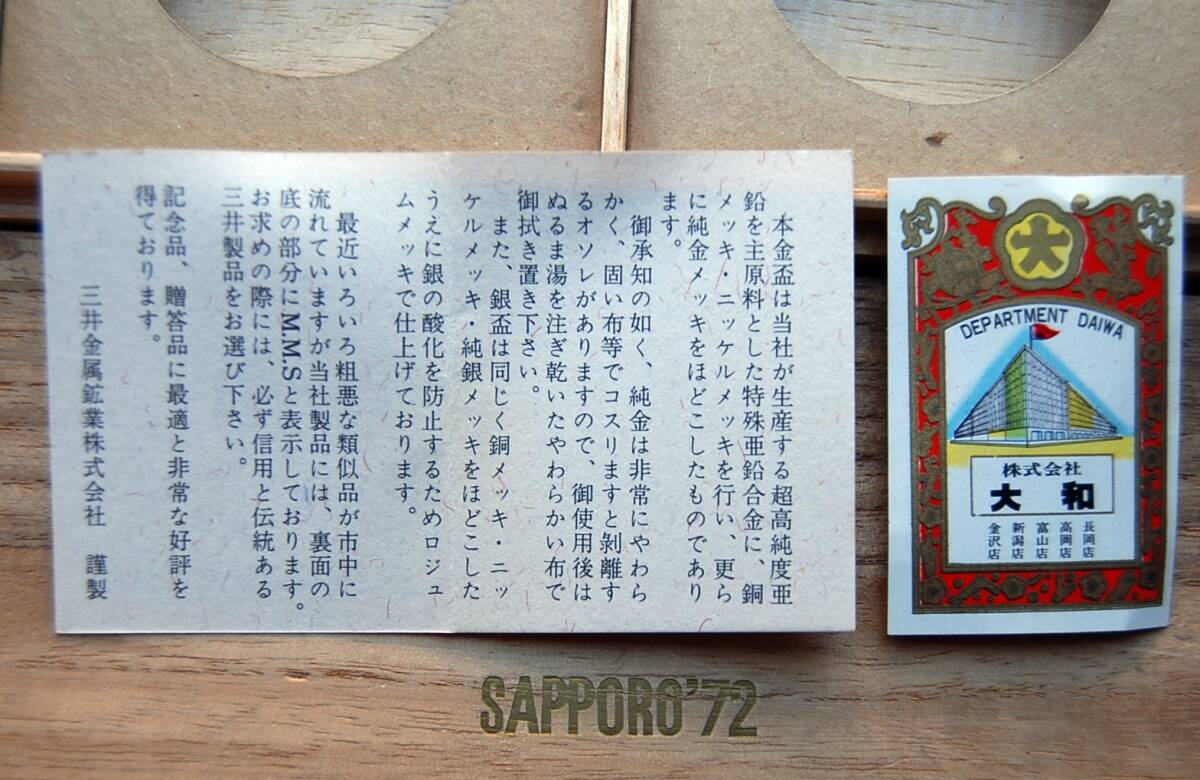 本金盃は当社が生産する超高純度亜
鉛を主原料とした特殊亜鉛合金に、銅
メッキ・ニッケルメッキを行い、更ら
に純金メッキをほどこしたものであり
ます。
御承知の如く、純金は非常にやわら
かく、固い布等でコスリますと剝離す
るオソレがありますので、御使用後は
ぬるま湯を注ぎ乾いたやわらかい布で
御拭き置き下さい。
また、銀盃は同じく銅メッキ・ニッ
ケルメッキ・純銀メッキをほどこした
うえに銀の酸化を防止するためロジュ
ムメッキで仕上げております。
最近いろいろ粗悪な類似品が市中に
流れていますが当社製品には、裏面の
底の部分にM.M.Sと表示しております。
お求めの際には、必ず信用と伝統ある
三井製品をお選び下さい。
記念品、贈答品に最適と非常な好評を
得ております。
三井金属鉱業株式会社 謹製
大
DEPARTMENT DAIWA
株式会社
大和
長岡店
高岡店
富山店
新潟店
金沢店
SAPPORO'72